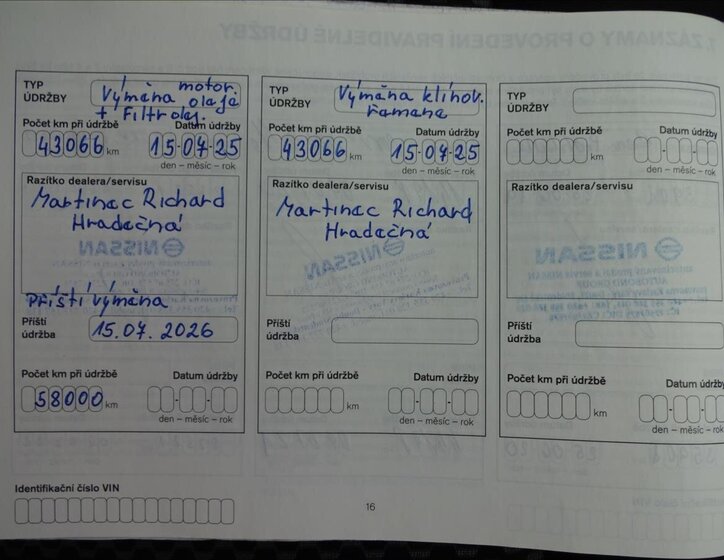 TYP
ÚDRŽBY
Výměna motor.
oleje
+ Filtr olej.
Počet km při údržbě
Datum údržby
43066 km
15-07-25
den – měsíc – rok
Razítko dealera/servisu
Martinec Richard
Hradečná
NISSAN
Příští výměna
Příští
údržba
15.07.2026
Počet km při údržbě
Datum údržby
58000 km
den – měsíc – rok
TYP
ÚDRŽBY
Výměna klínov.
řemene
Počet km při údržbě
Datum údržby
43066 km
15-07-25
den – měsíc – rok
Razítko dealera/servisu
Martinec Richard
Hradečná
NISSAN
Příští
údržba
Počet km při údržbě
Datum údržby
km
den – měsíc – rok
TYP
ÚDRŽBY
Počet km při údržbě
Datum údržby
km
den – měsíc – rok
Razítko dealera/servisu
NISSAN
Příští
údržba
Počet km při údržbě
Datum údržby
km
den – měsíc – rok
Identifikační číslo VIN
16
7. ZÁZNAMY O PROVEDENÍ PRAVIDELNÉ ÚDRŽBY